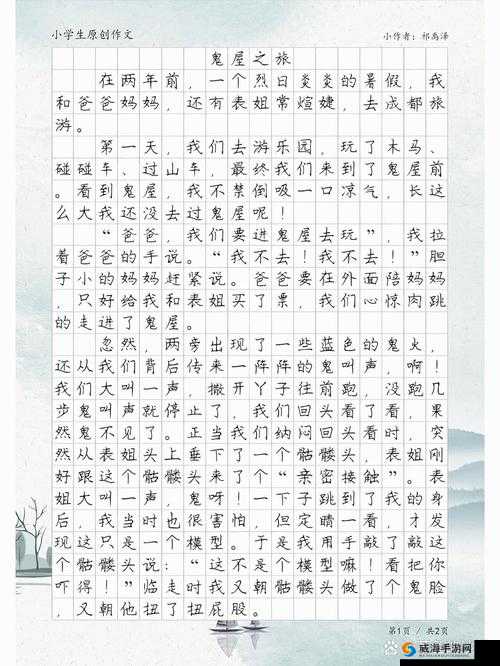 小学生原创作文
小作者：祁禹泽
鬼屋之旅
在两年前，一个烈日炎炎的暑假，我
和爸爸妈妈，还有表姐常煊婕，去成都旅
游。
第一天，我们去游乐园，玩了木马、
碰碰车、过山车，最终我们来到了鬼屋前
。看到鬼屋，我不禁倒吸一口凉气，长这
么大我还没去过鬼屋呢！
“爸爸，我们要进鬼屋去玩”，我拉
着爸爸的手说。“我不去！我不去！”胆
子小的妈妈赶紧说。爸爸要在外面陪妈妈
，只好给我和表姐买了票，我们心惊肉跳
的走进了鬼屋。
忽然，两旁出现了一些蓝色的鬼火，
还从我们背后传来一阵阵的鬼叫声，啊！
我们大叫一声，撒开丫子往前跑，没跑几
步鬼叫声就停止了，我们回头看了看，果
然鬼不见了。正当我们纳闷回头看时，突
然从表姐头上垂下了一个骷髅头，表姐刚
好跟这个骷髅头来了个“亲密接触”。表
姐大叫一声 鬼呀！一下子跳到了我的身
后，我当时也很害怕，但定睛一看，才发
现这只是一个模型。于是我用手敲了敲这
个骷髅头说：“这不是个模型嘛！看把你
吓得！”临走时我又朝骷髅头做了个鬼脸
，又朝他扭了扭屁股。
第1页 / 共2页
威海手游网